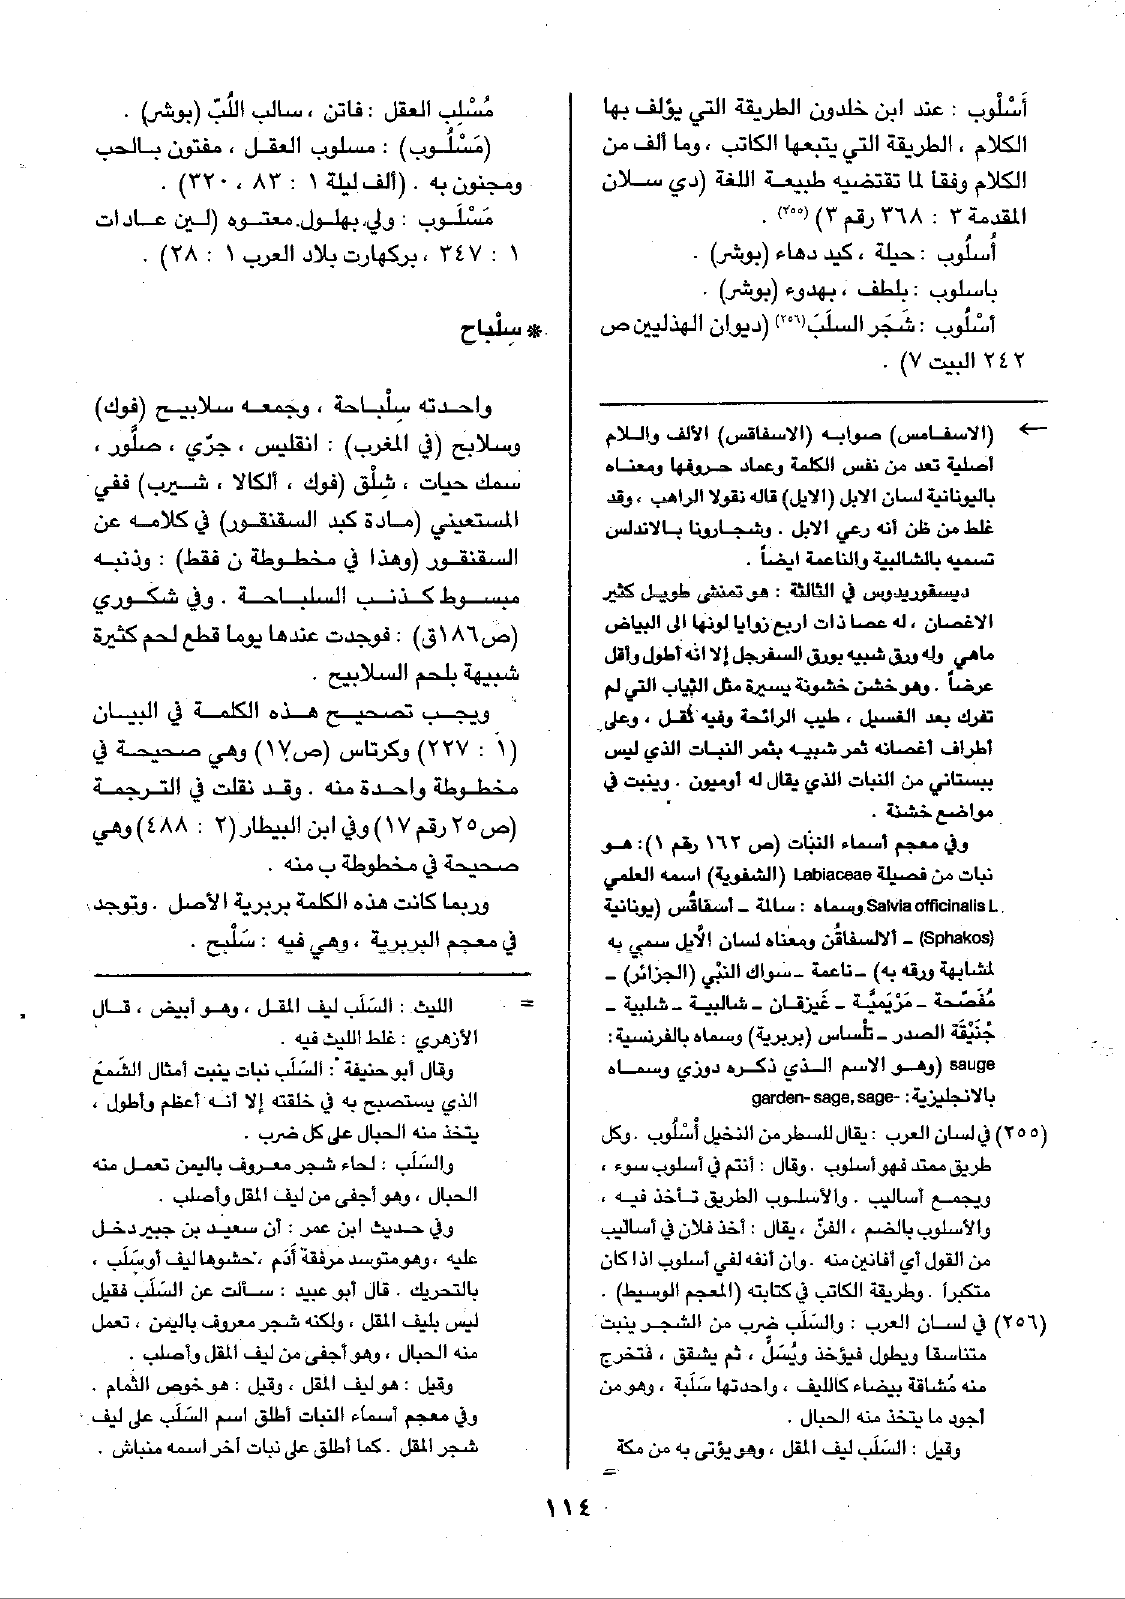 أَسْلُوب : عند ابن خلدون الطريقة التي يؤلف بها
الكلام ، الطريقة التي يتبعها الكاتب ، وما ألف من
الكلام وفقاً لما تقتضيه طبيعة اللغة (دي سلان
المقدمة ٣ : ٣٦٨ رقم ٣) (٢٥٥) .
أُسلُوب : حيلة ، كيد دهاء (بوشر) .
باسلوب : بلطف ، بهدوء (بوشر) .
أسْلُوب : شَجَر السلَبَ(٢٥٦) (ديوان الهذليين ص
٢٤٢ البيت ٧) .
← (الاسفامس) صوابه (الاسفاقس) الألف واللام
أصلية تعد من نفس الكلمة وعماد حروفها ومعناه
باليونانية لسان الابل (الايل) قاله نقولا الراهب ، وقد
غلط من ظن أنه رعي الابل . وشجارونا بالاندلس
تسميه بالشالبية والناعمة ايضاً .
ديسقوريدوس في الثالثة : هو تمنشي طويل كثير
الاغصان ، له عصا ذات اربع زوايا لونها الى البياض
ماهي وله ورق شبيه بورق السفرجل إلا انه أطول وأقل
عرضاً . وهو خشن خشونة يسيرة مثل الثياب التي لم
تفرك بعد الغسيل ، طيب الرائحة وفيه ثقل ، وعلى
أطراف أغصانه ثمر شبيه بثمر النبات الذي ليس
ببستاني من النبات الذي يقال له أوميون . وينبت في
مواضع خشنة .
وفي معجم أسماء النبات (ص ١٦٢ رقم ١): هو
نبات من فصيلة Labiaceae (الشفوية) اسمه العلمي
Salvia officinalis L. وسماه : سالمة - أسفاقُس (يونانية
(Sphakos) - ألالسفاقُن ومعناه لسان الأيل سمي به
لمشابهة ورقه به) - ناعمة - سواك النبّي (الجزائر) -
مُفَصّحة - مَرْيَميَّة - غَيزقان - شالبية - شلبية -
جُنَيْقَة الصدر - تَلُساس (بربرية) وسماه بالفرنسية :
sauge (وهو الاسم الذي ذكره دوزي وسماه
بالانجليزية : garden- sage, sage-
(٢٥٥) في لسان العرب : يقال للسطر من النخيل أُسْلُوب . وكل
طريق ممتد فهو أسلوب . وقال : أنتم في أسلوب سوء ،
ويجمع أساليب . والأسلوب الطريق تأخذ فيه ،
والأسلوب بالضم ، الفنّ ، يقال : أخذ فلان في أساليب
من القول أي أفانين منه . وان أنفه لفي أسلوب اذا كان
متكبراً . وطريقة الكاتب في كتابته (المعجم الوسيط) .
(٢٥٦) في لسان العرب : والسَلَب ضرب من الشجر ينبت
متناسقا ويطول فيؤخذ ويُسَلُّ ، ثم يشقق ، فتخرج
منه مُشاقة بيضاء كالليف ، واحدتها سَلَبة ، وهو من
أجود ما يتخذ منه الحبال .
وقيل : السَلَب ليف المقل ، وهو يؤتى به من مكة
=
مُسْلِب العقل : فاتن ، سالب اللُبّ (بوشر) .
(مَسْلُوب) : مسلوب العقل ، مفتون بالحب
ومجنون به . (ألف ليلة ١ : ٨٣ ، ٣٢٠) .
مَسْلَوب : ولي بهلول معتوه (لين عادات
١ : ٣٤٧ ، بركهارت بلاد العرب ١ : ٢٨) .
* سِلْباح
واحدته سِلْباحة ، وجمعه سلابيح (فوك)
وسلابح (في المغرب) : انقليس ، جرّي ، صلَّور ،
سمك حيات ، شلْق (فوك ، ألكالا ، شيرب) ففي
المستعيني (مادة كبد السقنقور) في كلامه عن
السقنقور (وهذا في مخطوطة ن فقط) : وذنبه
مبسوط كذنب السلباحة . وفي شكوري
(ص١٨٦ق) : فوجدت عندها يوما قطع لحم كثيرة
شبيهة بلحم السلابيح .
ويجب تصحيح هذه الكلمة في البيان
(١ : ٢٢٧) وكرتاس (ص١٧) وهي صحيحة في
مخطوطة واحدة منه . وقد نقلت في الترجمة
(ص٢٥ رقم ١٧) وفي ابن البيطار (٢ : ٤٨٨) وهي
صحيحة في مخطوطة ب منه .
وربما كانت هذه الكلمة بربرية الأصل . وتوجد
في معجم البربرية ، وهي فيه : سَلْبح .
= الليث : السَلَب ليف المقل ، وهو أبيض ، قال
الأزهري : غلط الليث فيه .
وقال أبو حنيفة : السَلَب نبات ينبت أمثال الشمع
الذي يستصبح به في خلقته إلا أنه أعظم وأطول ،
يتخذ منه الحبال على كل ضرب .
والسَلَب : لحاء شجر معروف باليمن تعمل منه
الحبال ، وهو أجفى من ليف المقل وأصلب .
وفي حديث ابن عمر : أن سعيد بن جبير دخل
عليه ، وهو متوسد مرفقة أَدَم ، حشوها ليف أو سَلَب ،
بالتحريك . قال أبو عبيد : سألت عن السَلَب فقيل
ليس بليف المقل ، ولكنه شجر معروف باليمن ، تعمل
منه الحبال ، وهو أجفى من ليف المقل وأصلب .
وقيل : هو ليف المقل ، وقيل : هو خوص الثمام .
وفي معجم أسماء النبات أطلق اسم السَلَب على ليف
شجر المقل . كما أطلق على نبات آخر اسمه منباش .
١١٤